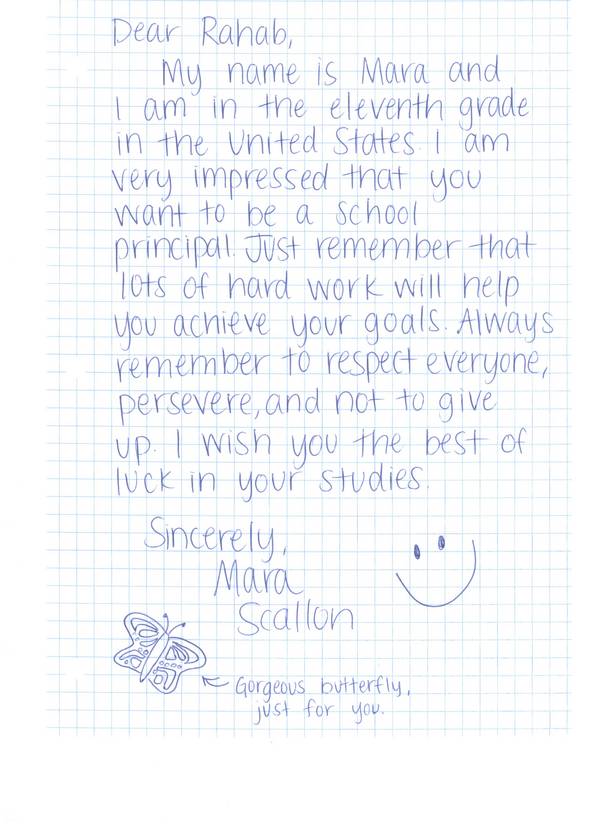 Dear Rahab,
My name is Mara and
I am in the eleventh grade
in the United States. I am
very impressed that you
want to be a school
principal. Just remember that
lots of hard work will help
you achieve your goals. Always
remember to respect everyone,
persevere, and not to give
up. I wish you the best of
luck in your studies.
Sincerely,
Mara
Scallon
Gorgeous butterfly,
just for you.